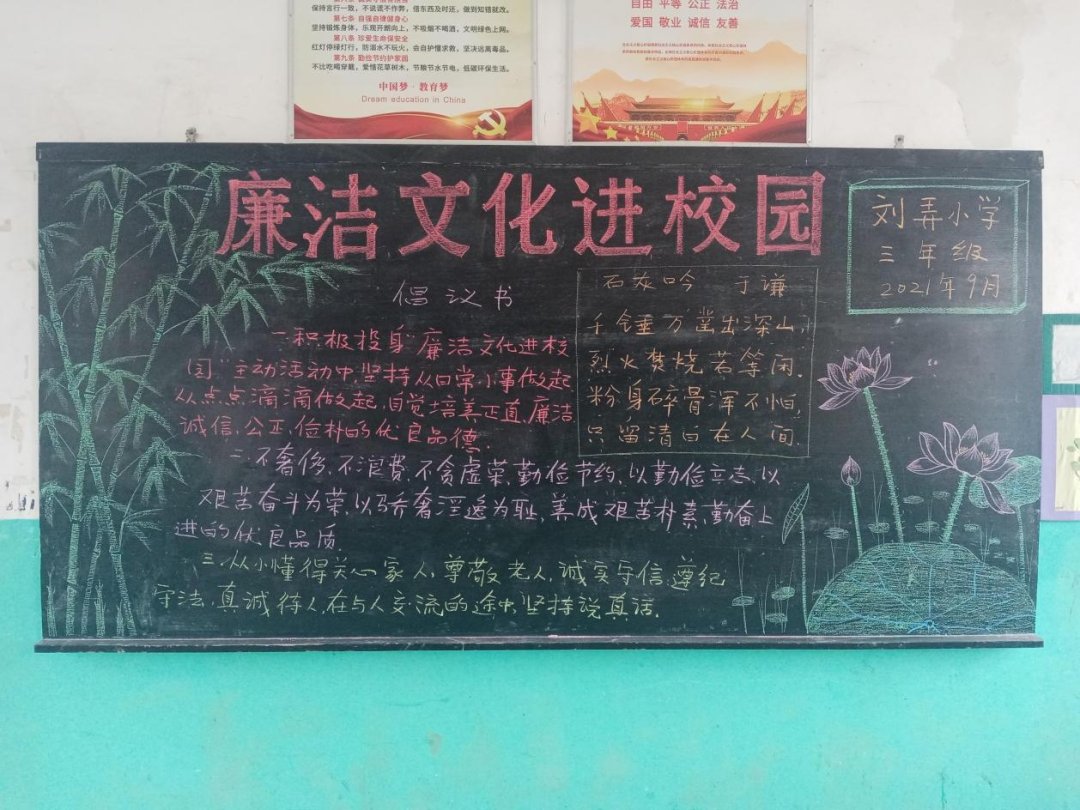 保持言行一致，不说谎不作弊，借东西及时还，做到知错就改。
第七条 自强自律健身心
坚持锻炼身体，乐观开朗向上，不吸烟不喝酒，文明绿色上网。
第八条 珍爱生命保安全
红灯停绿灯行，防溺水不玩火，会自护懂求救，坚决远离毒品。
第九条 勤俭节约护家园
不比吃喝穿戴，爱惜花草树木，节粮节水节电，低碳环保生活。
中国梦·教育梦
Dream education in China
自由 平等 公正 法治
爱国 敬业 诚信 友善
廉洁文化进校园
刘弄小学
三年级
2021年9月
倡议书
一.积极投身"廉洁文化进校
园"主动活动中,坚持从日常小事做起
从点点滴滴做起,自觉培养正直,廉洁
诚信,公正,俭朴的优良品德.
二.不奢侈,不浪费,不贪虚荣,勤俭节约,以勤俭立志,以
艰苦奋斗为荣,以骄奢淫逸为耻,养成艰苦朴素,勤奋上
进的优良品质.
三.从小懂得关心家人,尊敬老人,诚实守信,遵纪
守法,真诚待人,在与人交流的途中,坚持说真话.
石灰吟 于谦
千锤万凿出深山,
烈火焚烧若等闲.
粉身碎骨浑不怕,
只留清白在人间.